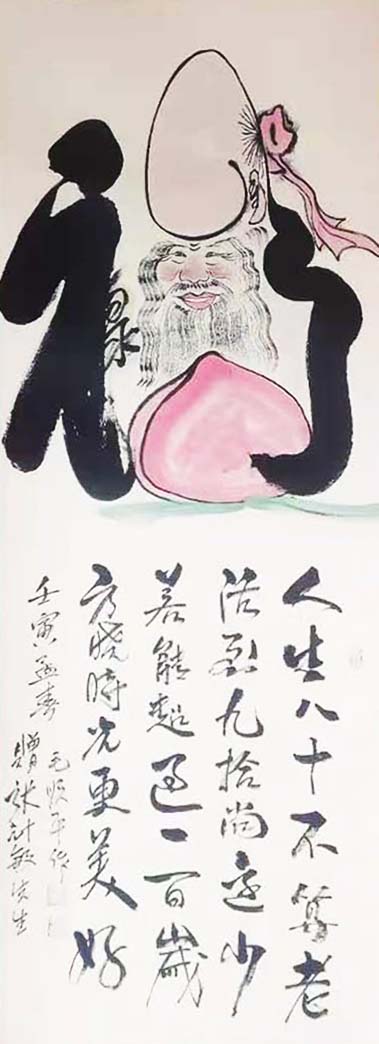 人生八十不算老
活到九拾尚还少
若能超过一百歲
方晓时光更美好
壬寅孟春
毛顺平作
贈张計敏先生